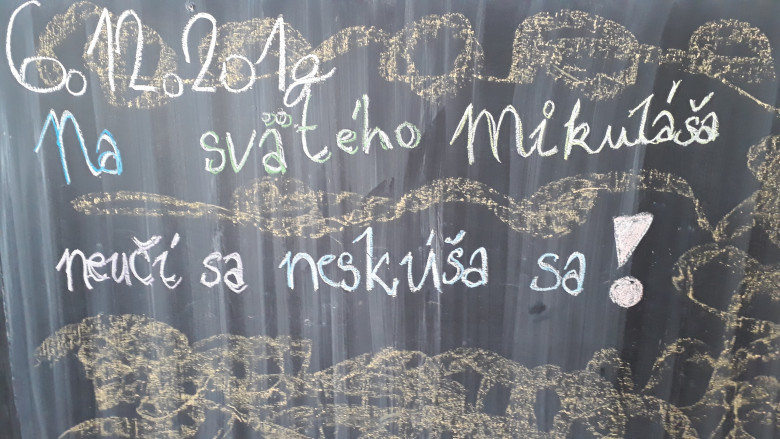 6.12.2019
Na svätého Mikuláša
neučí sa neskúša sa!